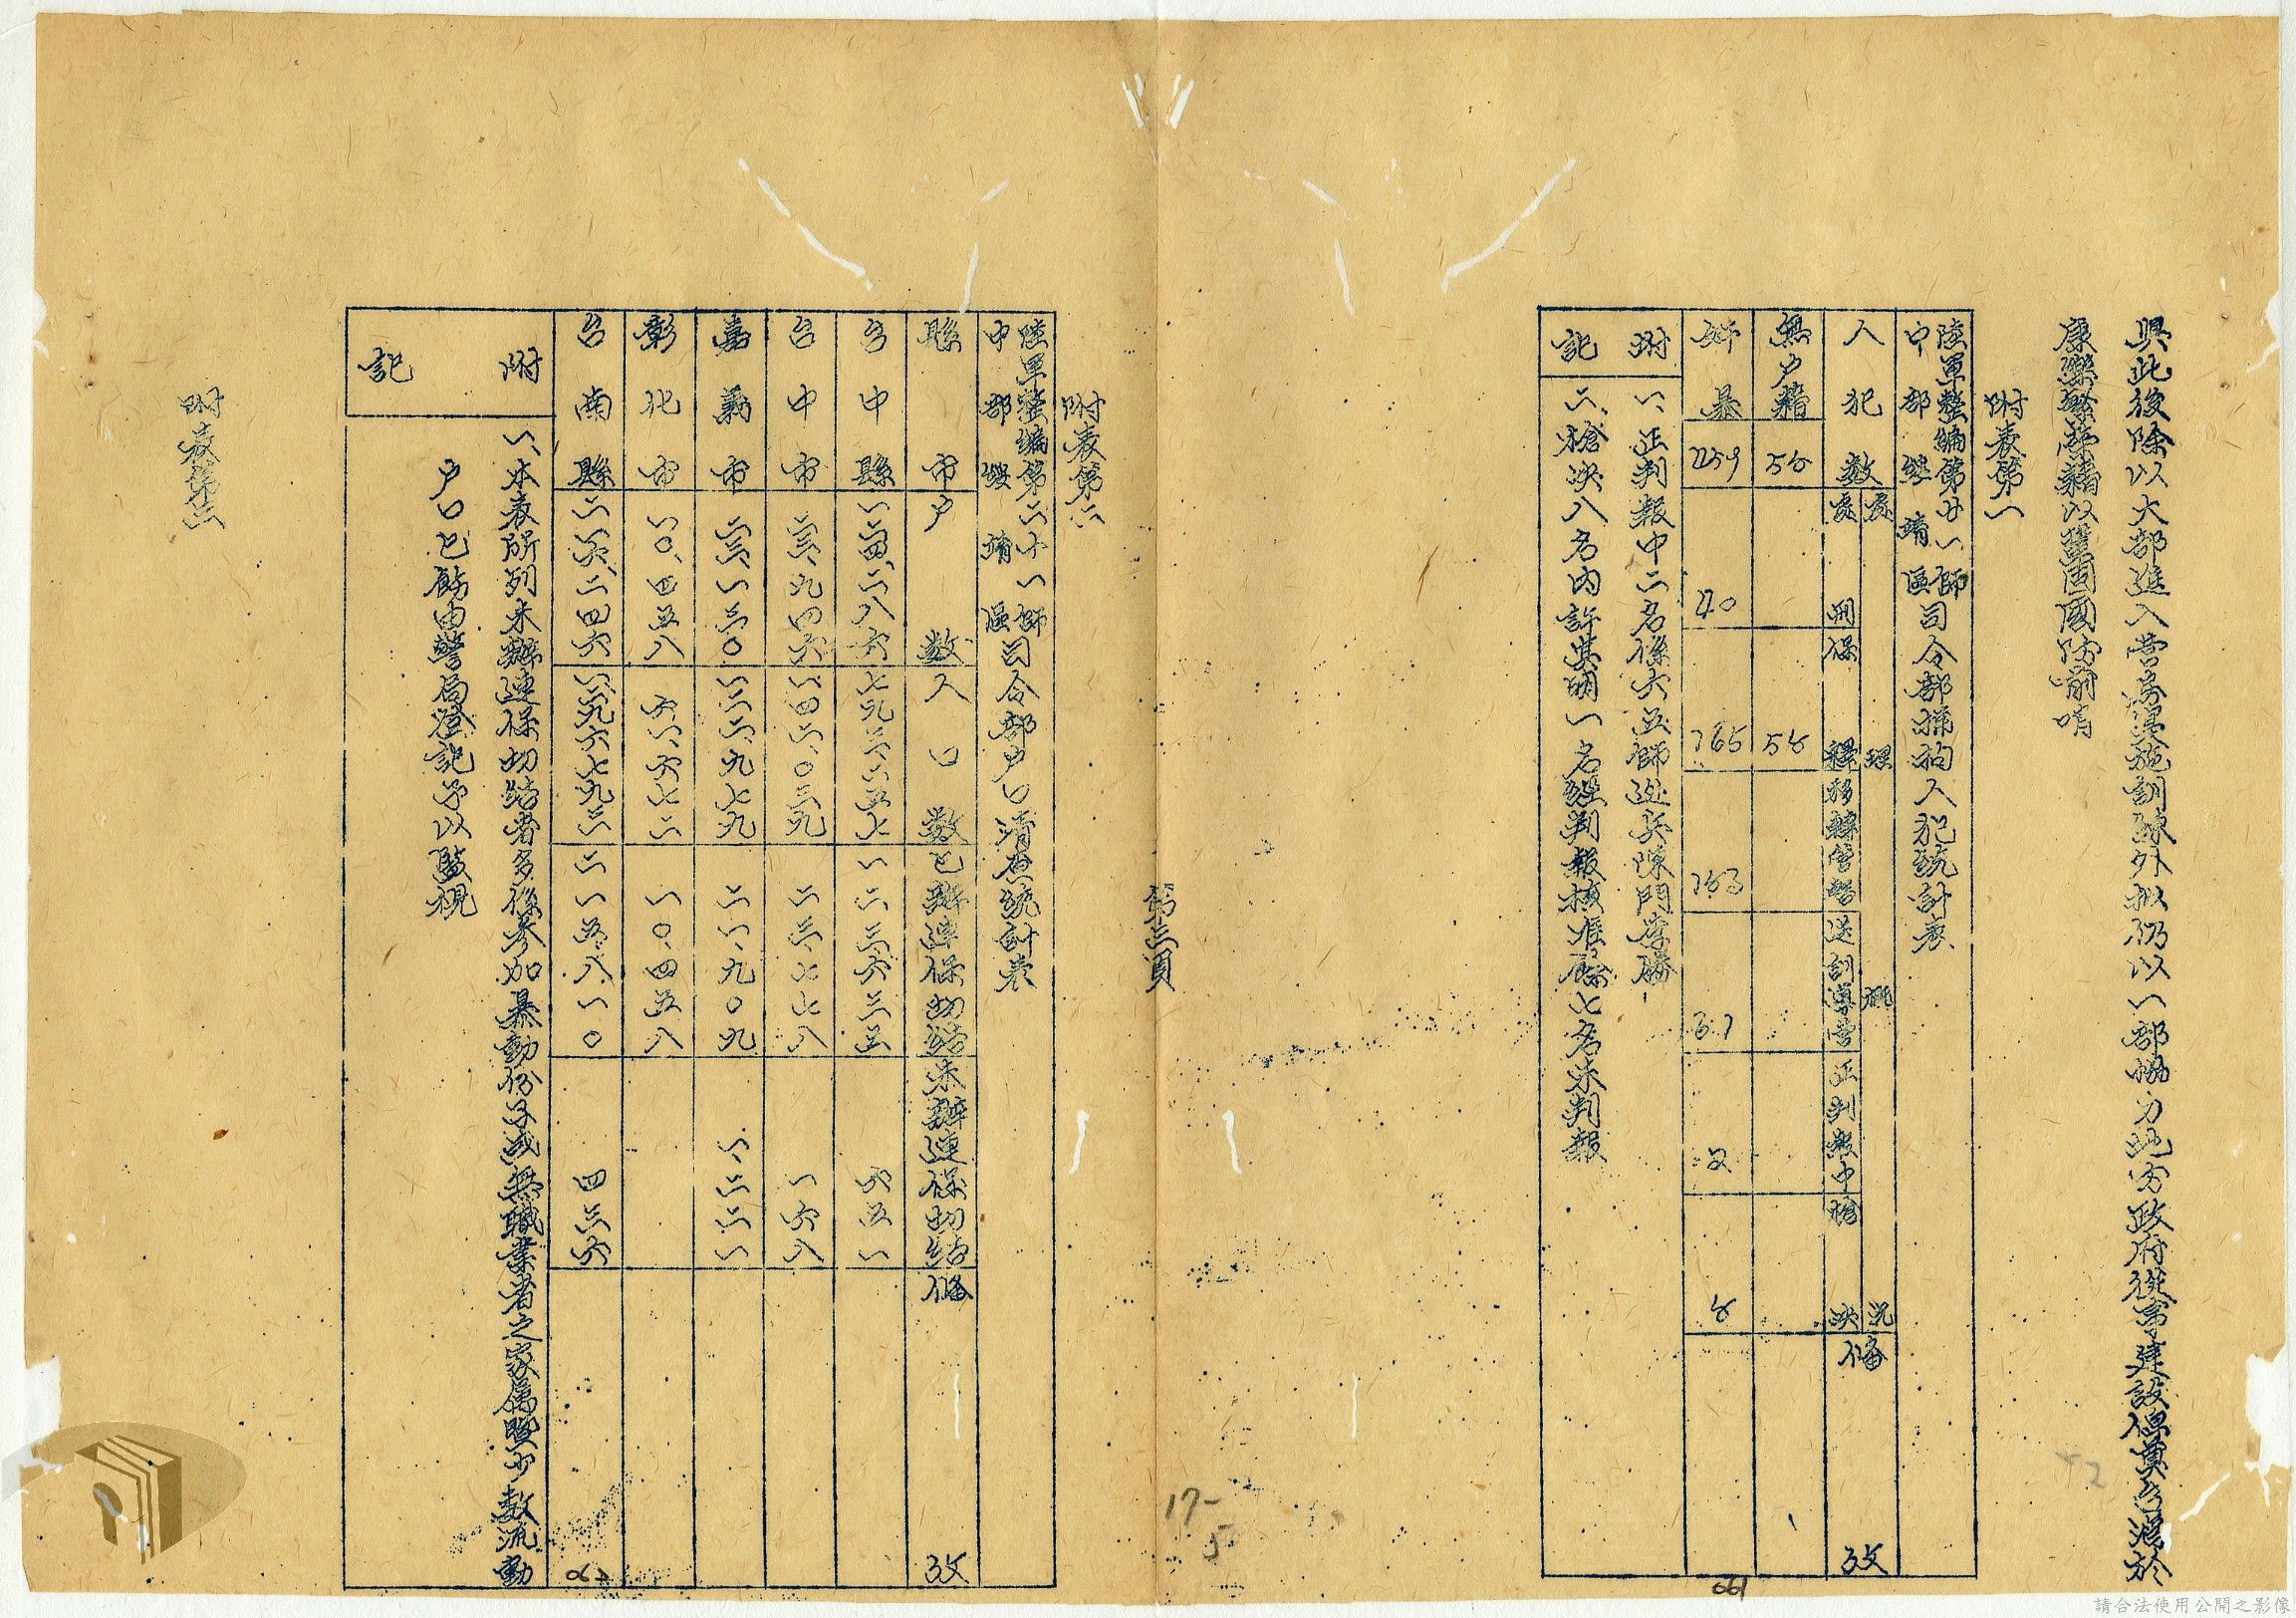 與此後除以大部進入營房實施訓練外拟仍以一部協力地方政府從事建設俾奠台灣於
康樂繁榮藉以鞏固國防前哨
附表第一
陸軍整編第廿一師司令部捕拘人犯統計表
中部綏靖區
人犯數 處理概況 備攷
處刑 保釋 移轉管轄 送訓導營 正判報中 槍決
無戶籍 58 58
奸暴 259 40 165 153 31 2 8
附記
一、正判報中二名係六五師逃兵陳門李勝
二、槍決八名內許其明一名經判報核准餘七名未判報
第三頁
附表第二
陸軍整編第二十一師司令部戶口清查統計表
中部綏靖區
縣市 戶數 人口數 已辦連保切結 未辦連保切結 備攷
台中縣 一二四、二八六 七九三六五七 一二三、六三五 六五一
台中市 二三、九四六 一四二、〇三九 二三、七七八 一六八
嘉義市 二三、一三〇 一二二、九七九 二一、九〇九 一、二二一
彰化市 一〇、四五八 六一、六七二 一〇、四五八
台南縣 二一六、二四六 一、二九六七九三 二一五、八一〇 四三六
附記
一、本表所列未辦連保切結者多係參加暴動份子或無職業者之家屬暨少數流動
戶口已飭由警局登記予以監視
附表第三
17-
5
061
請合法使用公開之影像